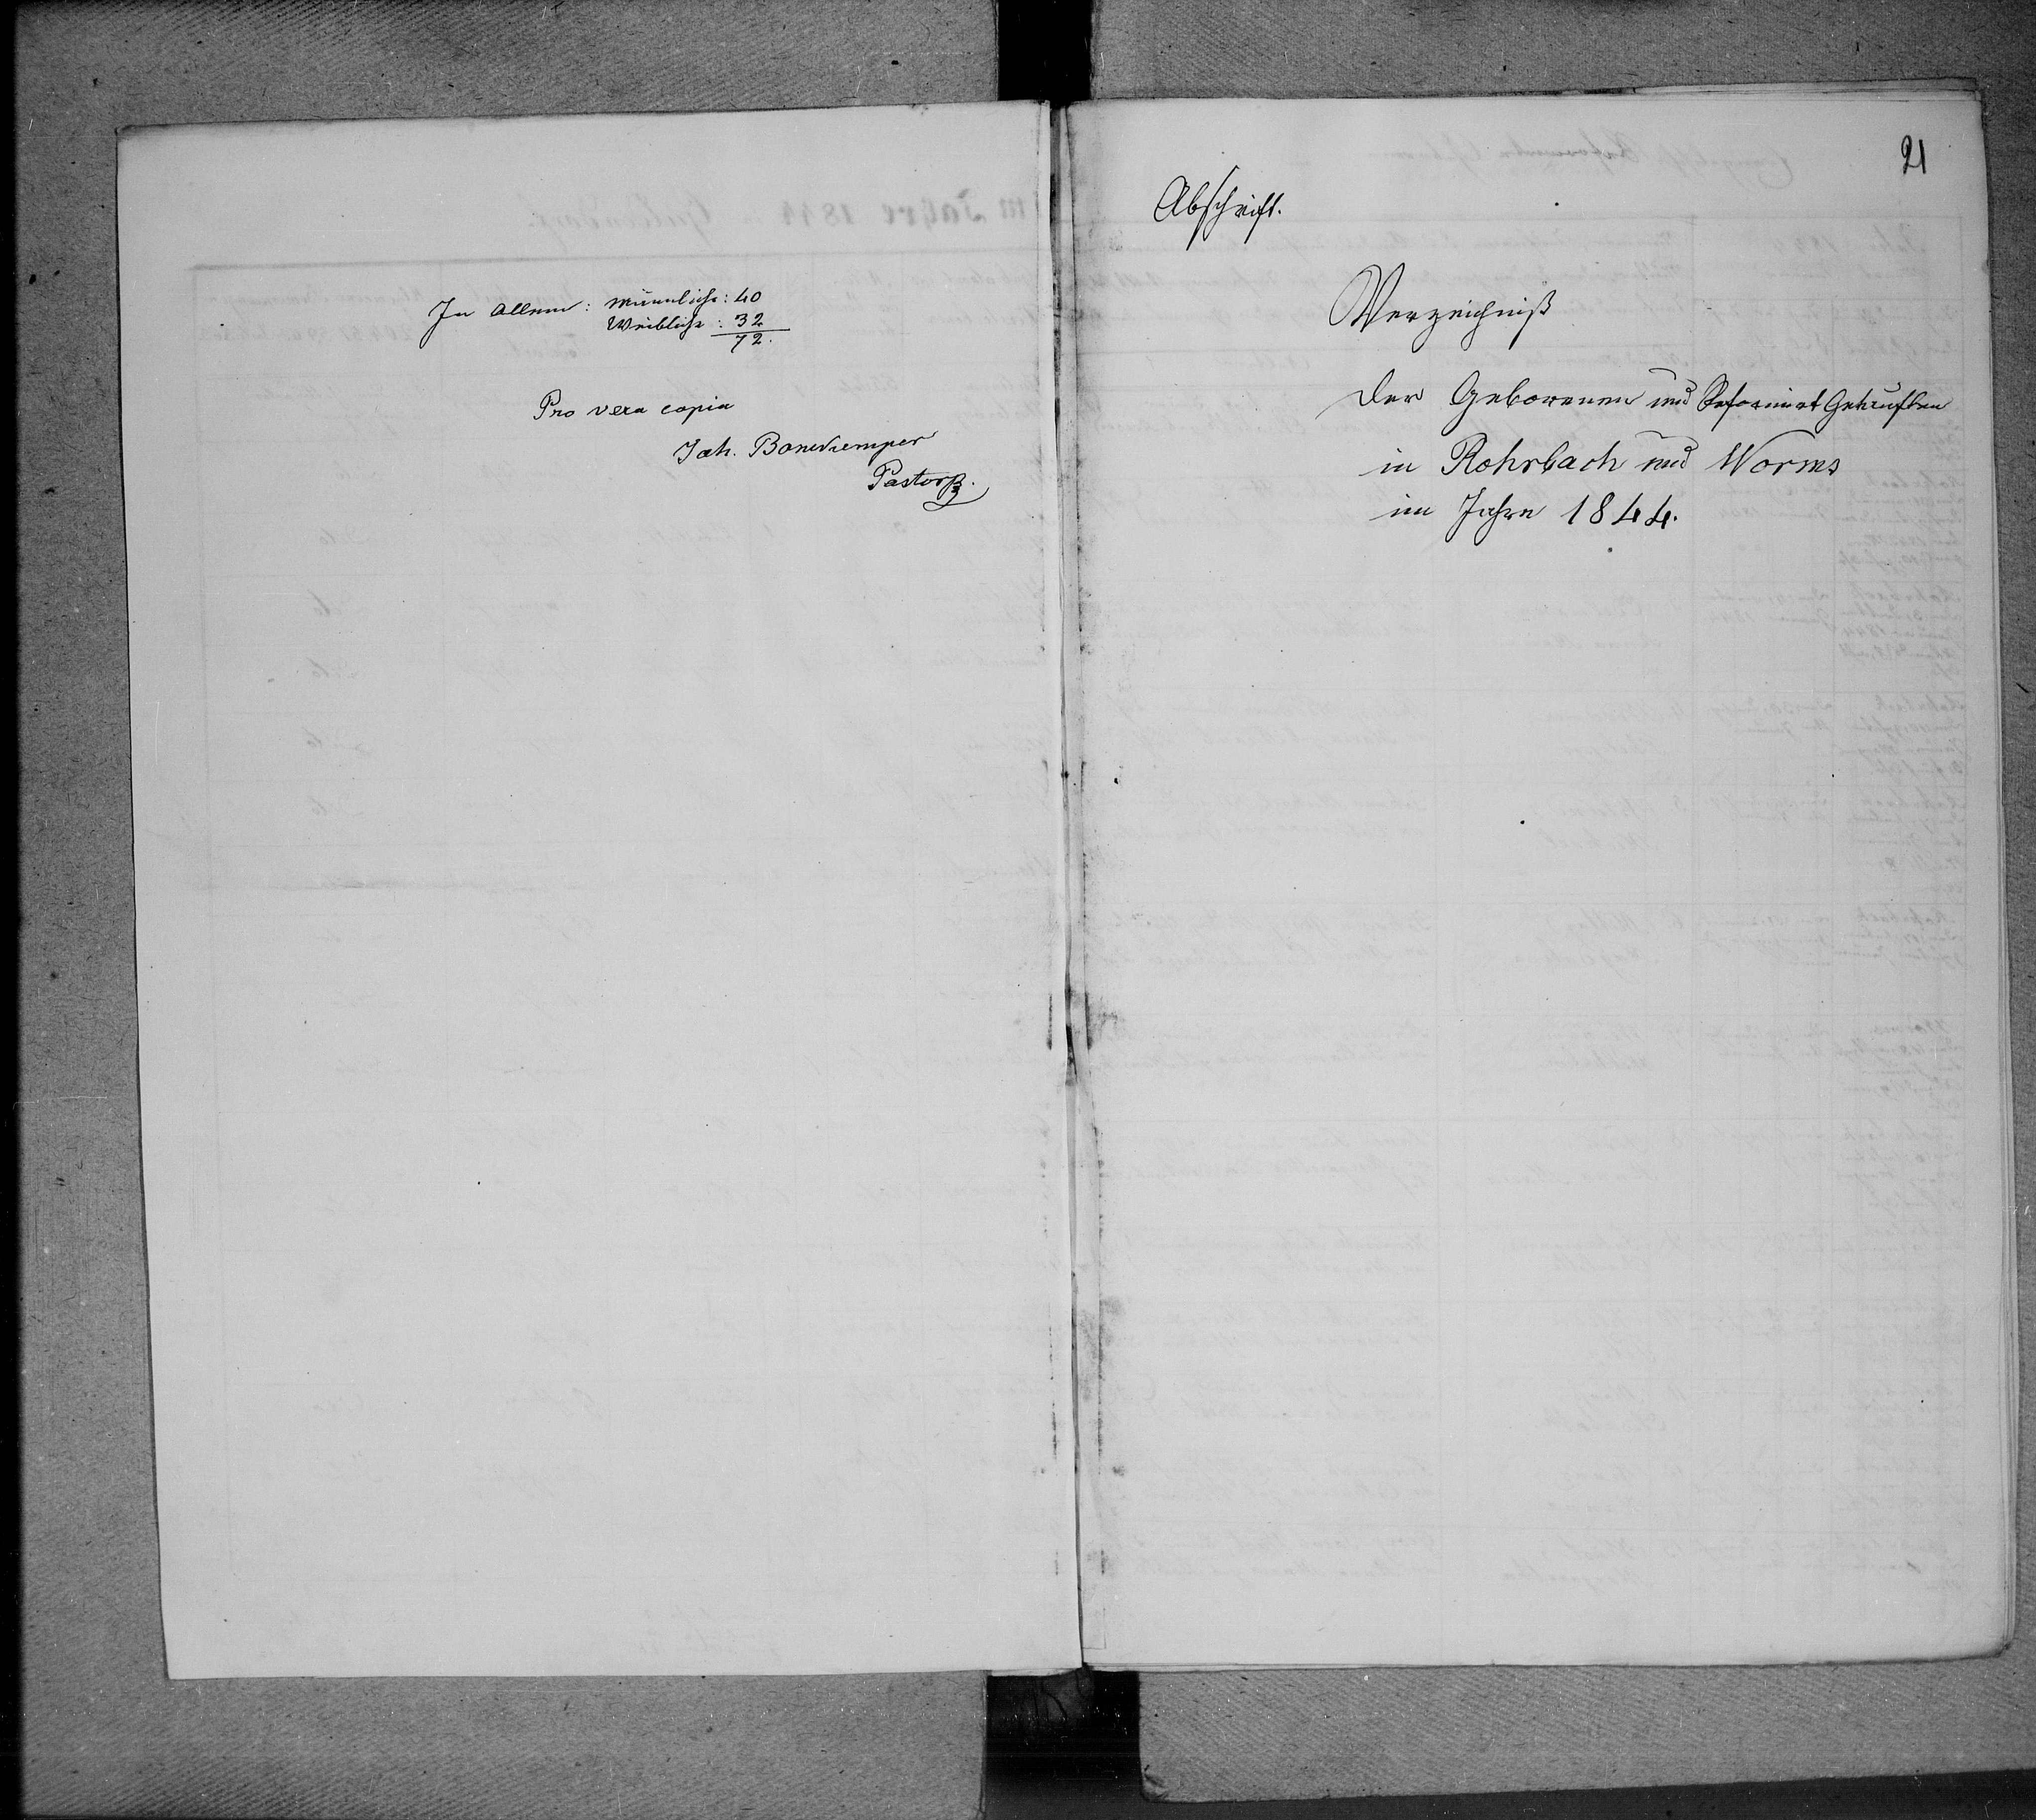 In Allem: Männliche: 40
Weibliche: 32
72.
Pro vera copia
Joh. Bonekemper
Pastor
21
Abschrift.
Verzeichniß
der Geborenen und Reformirt Getauften
in Rohrbach und Worms
im Jahre 1844.